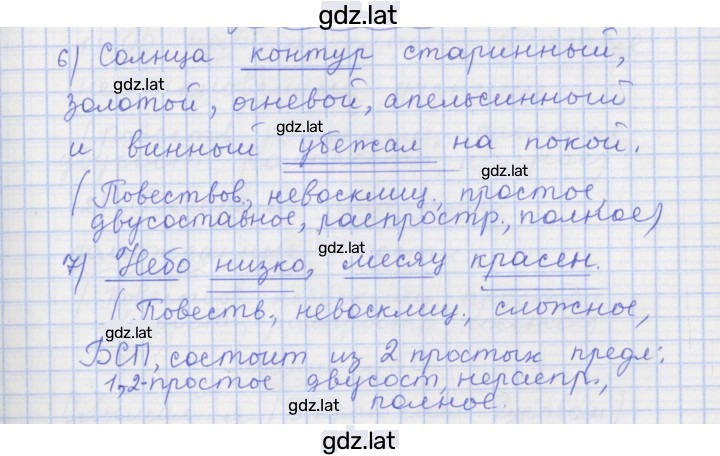 gdz.lat
6) Солнца контур старинный,
gdz.lat
золотой, огневой, апельсинный
gdz.lat
и винный убежал на покой.
gdz.lat
(Повествов., невосклиц., простое,
двусоставное, распростр., полное)
gdz.lat
7) Небо низко, месяц красен.
gdz.lat
(Повеств., невосклиц., сложное,
gdz.lat
БСП, состоит из 2 простых предл:
1,2-простое двусост, нераспр.,
gdz.lat
полное.
gdz.lat